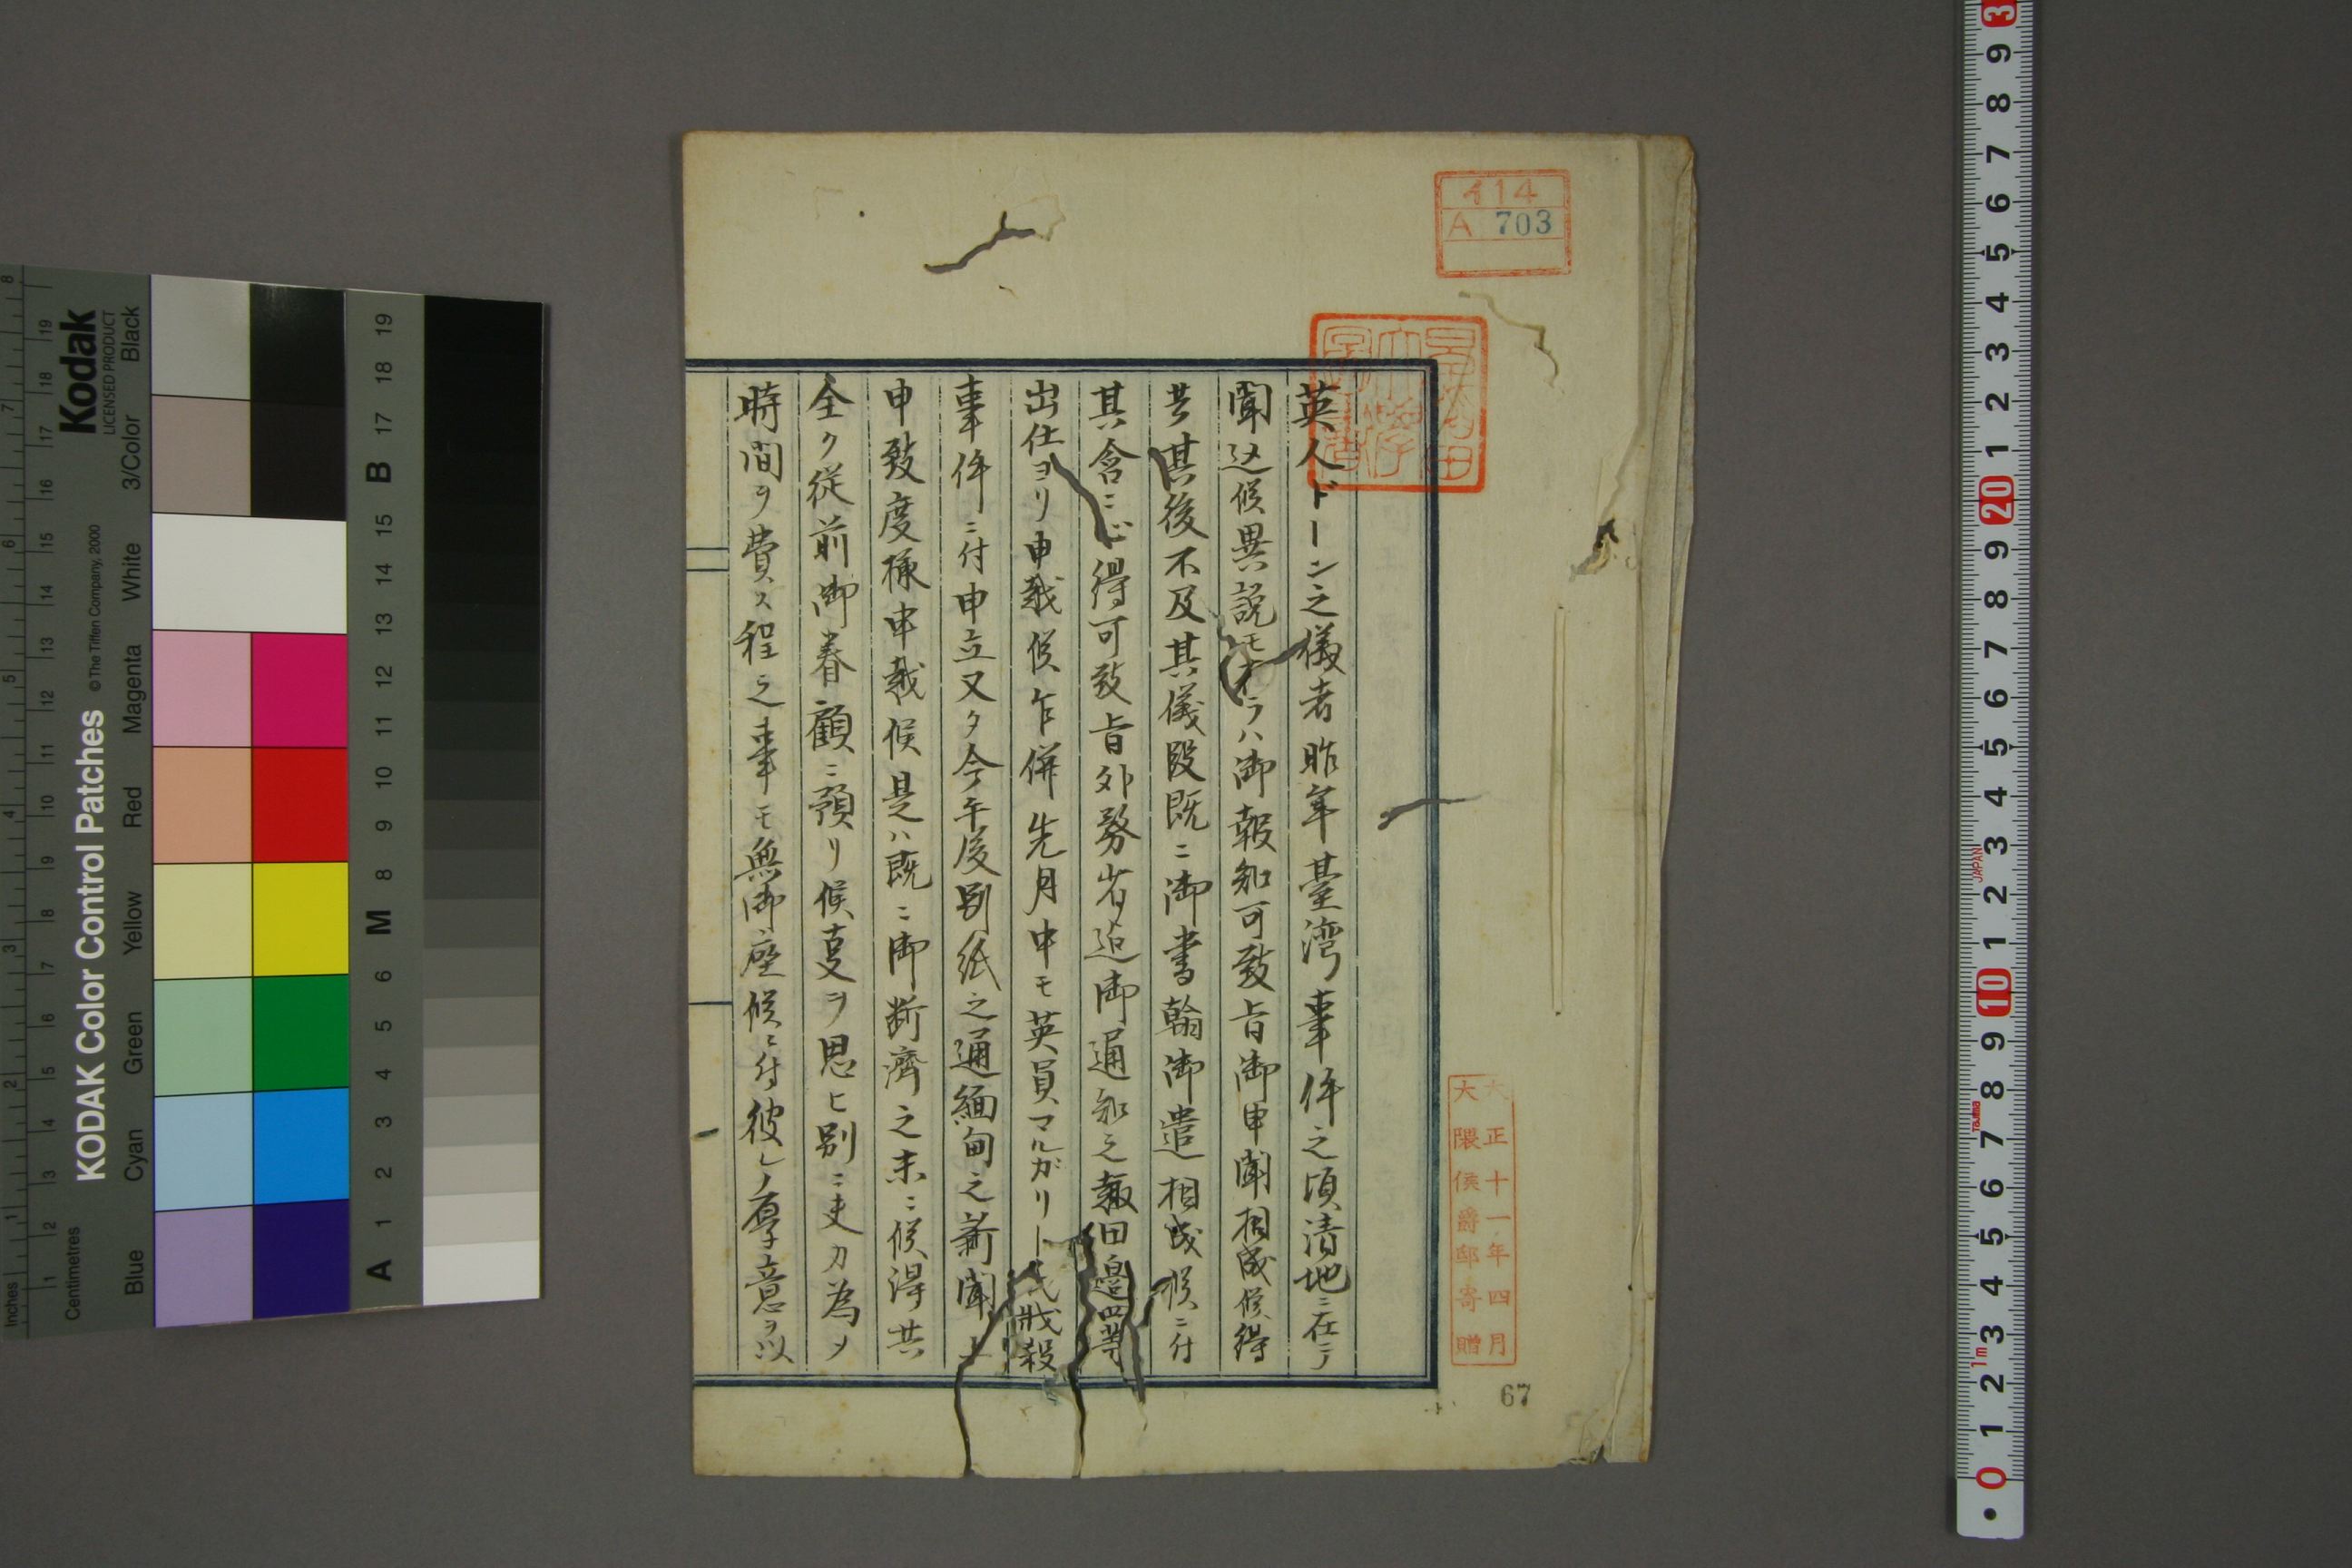 イ14
A 703
早稲田大学図書
英人ドーン之儀者昨年臺湾事件之頃清地ニ在テ
聞込候異説モ有ラハ御報知可致旨御申聞相成候得
共其後不及其儀段既ニ御書翰御遣相成候ニ付
其含ニ心得可致旨外務省迠御通知之趣田邉四等
出仕ヨリ申越候乍併先月中モ英員マルガリート氏戕殺
事件ニ付申立又タ今午後別紙之通緬甸之新聞
申致度様申越候是ハ既ニ御断濟之末ニ候得共
全ク従前御眷顧ニ預リ候支ヲ思ヒ別ニ吏力為メ
時間ヲ費ス程之事モ無御座候ニ付彼レノ厚意ヲ以
大正十一年四月
大隈侯爵邸寄贈
67
KODAK Color Control Patches
© The Tiffen Company, 2000
Kodak
LICENSED PRODUCT
Centimetres
Inches
Blue
Cyan
Green
Yellow
Red
Magenta
White
3/Color
Black
A 1 2 3 4 5 6 M 8 9 10 11 12 13 14 15 B 17 18 19
JAPAN
Tajima
1m